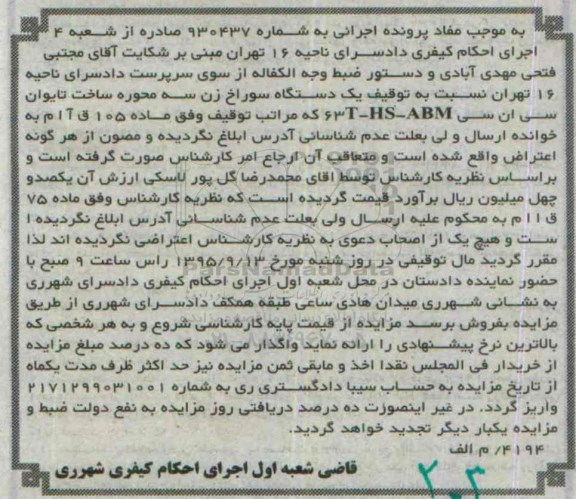 به موجب مفاد پرونده اجرائی به شماره ۹۳۰۴۳۷ صادره از شعبه ۴
اجرای احکام کیفری دادسرای ناحیه ۱۶ تهران مبنی بر شکایت آقای مجتبی
فتحی مهدی آبادی و دستور ضبط وجه الکفاله از سوی سرپرست دادسرای ناحیه
۱۶ تهران نسبت به توقیف یک دستگاه سوراخ زن سه محوره ساخت تایوان
سی ان سی ۶۳T-HS-ABM که مراتب توقیف وفق ماده ۱۰۵ ق آ ا م به
خوانده ارسال و لی بعلت عدم شناسائی آدرس ابلاغ نگردیده و مصون از هر گونه
اعتراض واقع شده است و متعاقب آن ارجاع امر کارشناس صورت گرفته است و
براساس نظریه کارشناس توسط اقای محمدرضا گل پور باسکی ارزش آن یکصدو
چهل میلیون ریال برآورد قیمت گردیده است که نظریه کارشناس وفق ماده ۷۵
ق ا ا م به محکوم علیه ارسال ولی بعلت عدم شناسائی آدرس ابلاغ نگردیده ا
ست و هیچ یک از اصحاب دعوی به نظریه کارشناس اعتراضی نگردیده اند لذا
مقرر گردید مال توقیفی در روز شنبه مورخ ۱۳۹۵/۹/۱۳ راس ساعت ۹ صبح با
حضور نماینده دادستان در محل شعبه اول اجرای احکام کیفری دادسرای شهرری
به نشانی شهرری میدان هادی ساعی طبقه همکف دادسرای شهرری از طریق
مزایده بفروش برسد مزایده از قیمت پایه کارشناسی شروع و به هر شخصی که
بالاترین نرخ پیشنهادی را ارائه نماید واگذار می شود که ده درصد مبلغ مزایده
از خریدار فی المجلس نقدا اخذ و مابقی ثمن مزایده نیز حد اکثر ظرف مدت یکماه
از تاریخ مزایده به حساب سیبا دادگستری ری به شماره ۲۱۷۱۲۹۹۰۳۱۰۰۱
واریز گردد. در غیر اینصورت ده درصد دریافتی روز مزایده به نفع دولت ضبط و
مزایده یکبار دیگر تجدید خواهد گردید.
۴۱۹۴/ م الف
قاضی شعبه اول اجرای احکام کیفری شهرری
۲۰۳
ParsNamadData